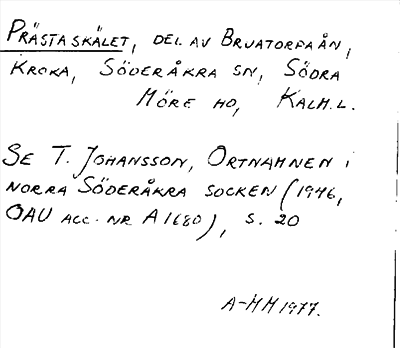 PRÄSTASKÄLET, DEL AV BRUATORPAÅN,
KROKA, SÖDERÅKRA SN, SÖDRA
MÖRE HD, KALM.L.
SE T. JOHANSSON, ORTNAMNEN I
NORRA SÖDERÅKRA SOCKEN (1946,
OAU ACC. NR A1680), S. 20
A-MH 1977.